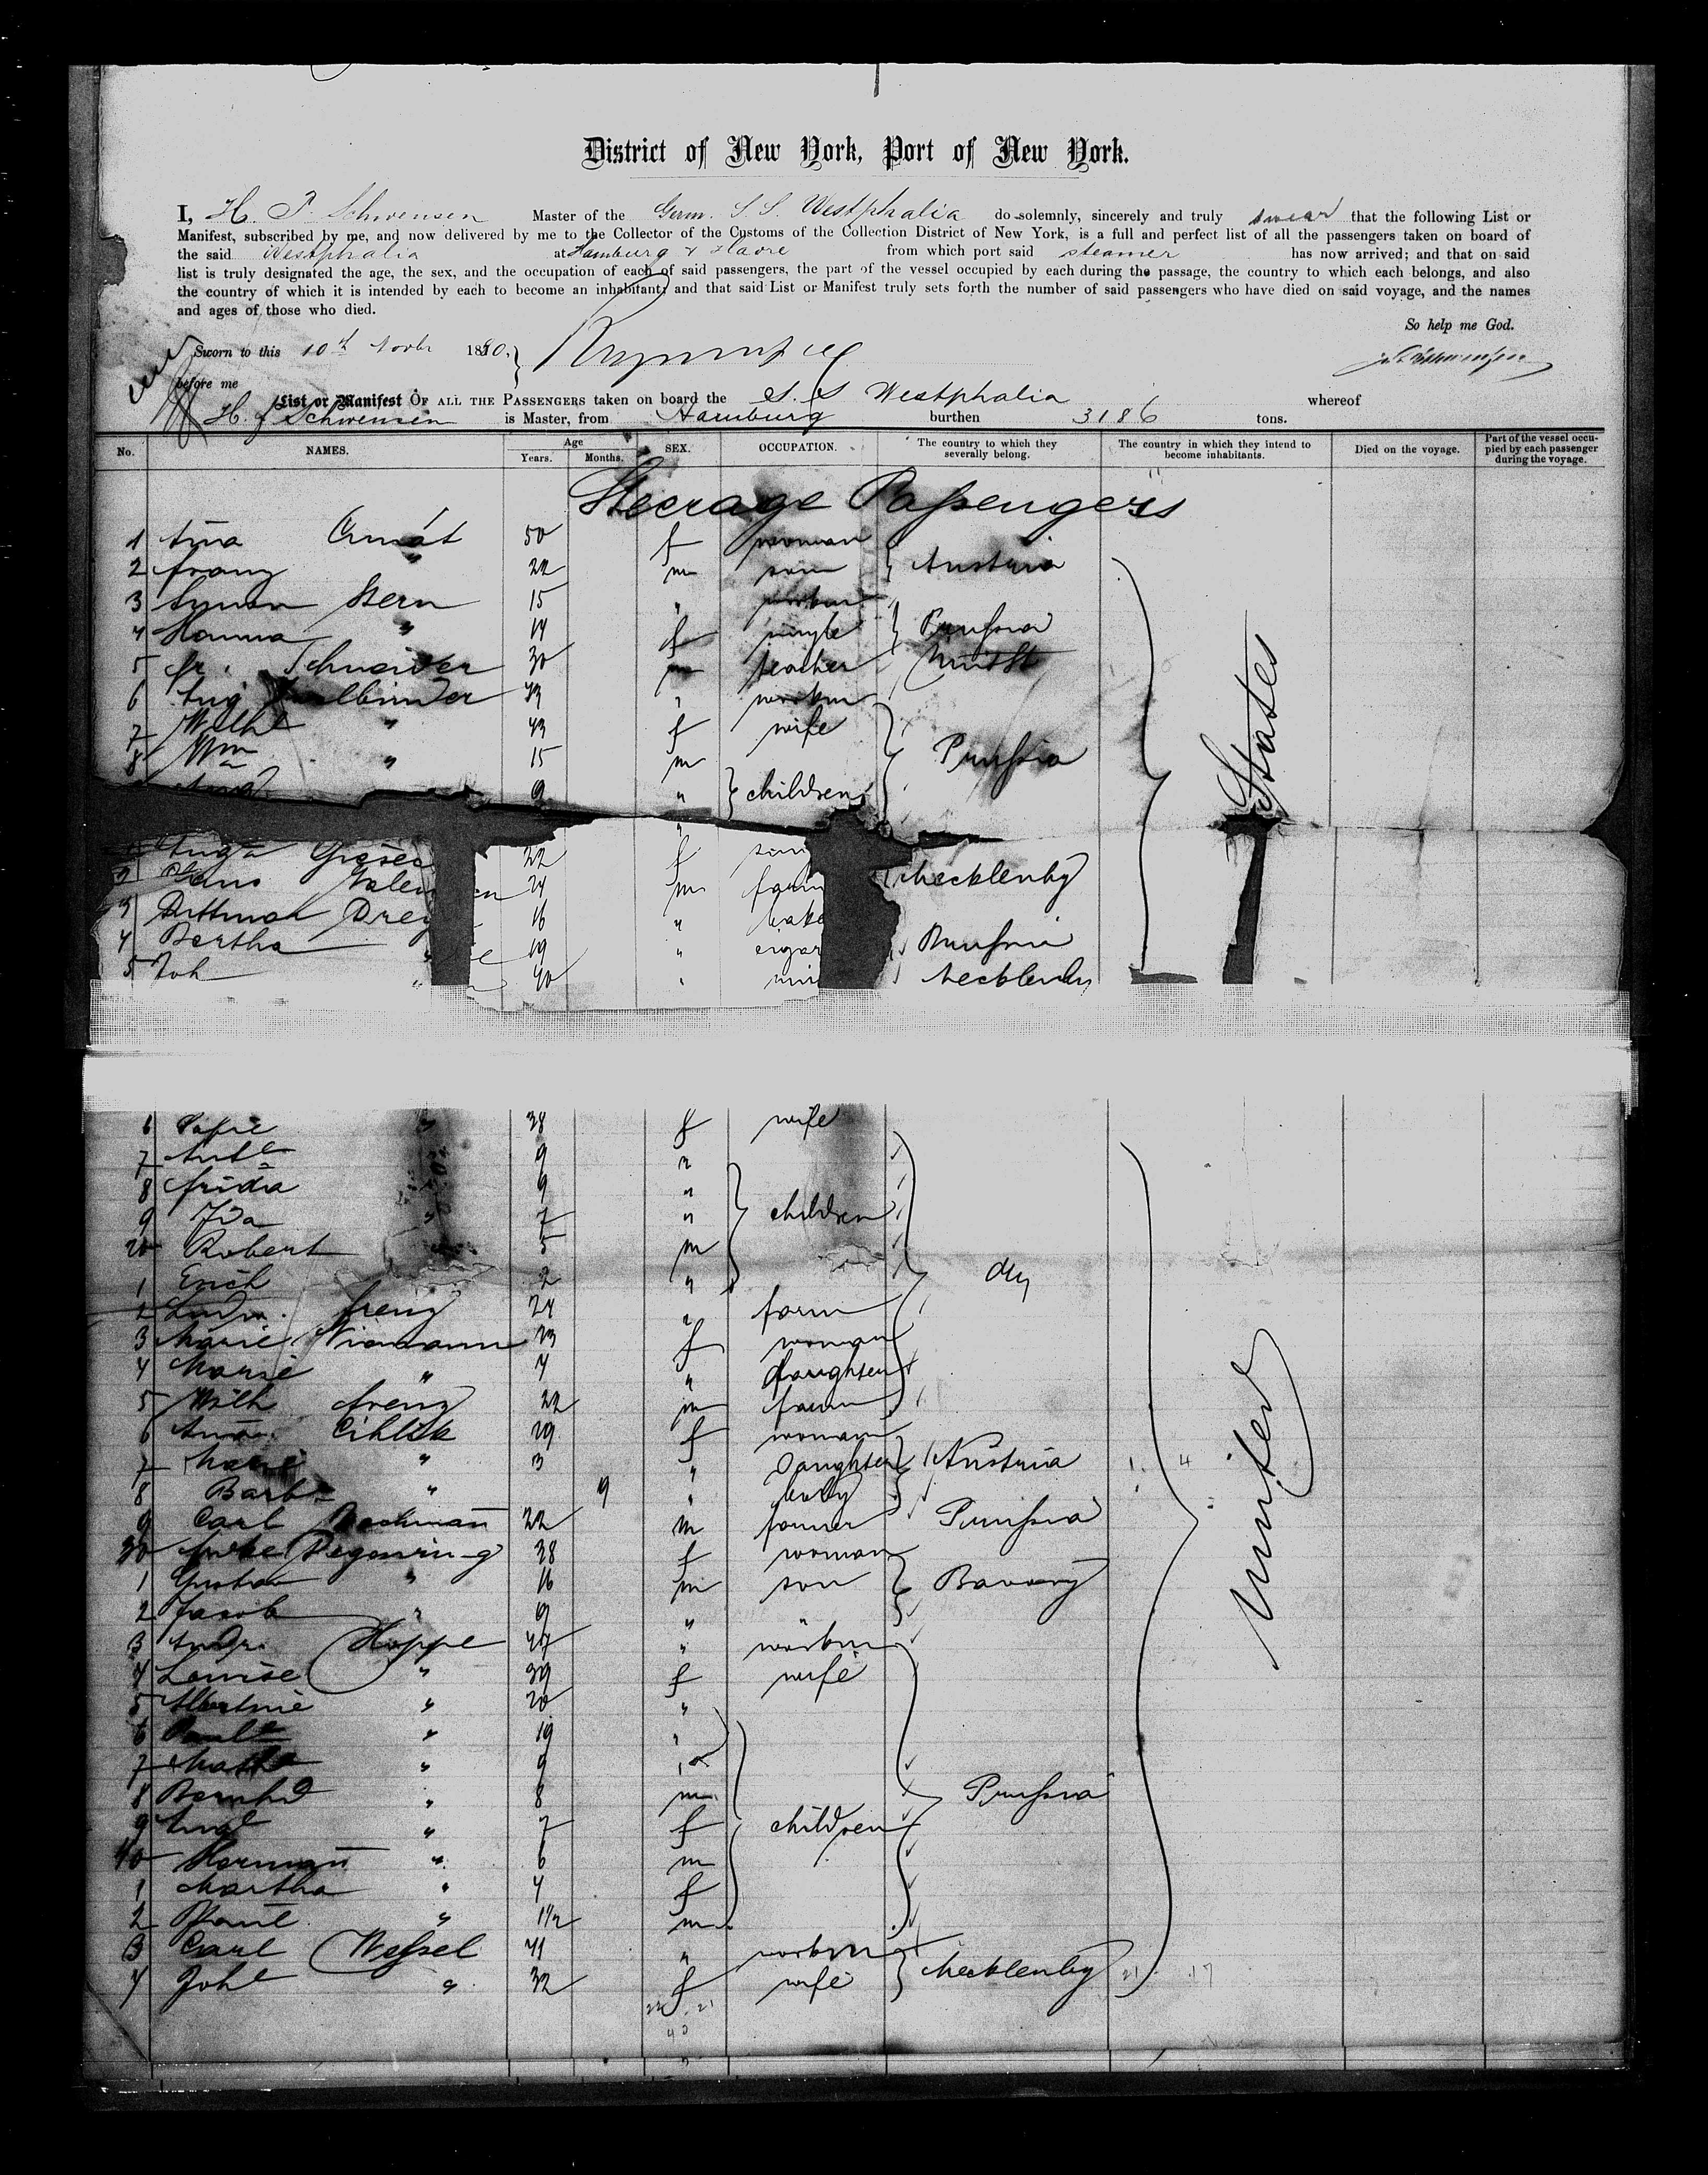 District of New York, Port of New York.
I, H. P. Schwensen Master of the Germ. S. S. Westphalia do solemnly, sincerely and truly swear that the following List or
Manifest, subscribed by me, and now delivered by me to the Collector of the Customs of the Collection District of New York, is a full and perfect list of all the passengers taken on board of
the said Westphalia at Hamburg & Havre from which port said steamer has now arrived; and that on said
list is truly designated the age, the sex, and the occupation of each of said passengers, the part of the vessel occupied by each during the passage, the country to which each belongs, and also
the country of which it is intended by each to become an inhabitant; and that said List or Manifest truly sets forth the number of said passengers who have died on said voyage, and the names
and ages of those who died.
So help me God.
Sworn to this 10th Novbr 1880.
before me
List or Manifest OF ALL THE PASSENGERS taken on board the S. S Westphalia whereof
H. Schwensen is Master, from Hamburg burthen 3186 tons.
No. NAMES. Age Years. Months. SEX. OCCUPATION. The country to which they severally belong. The country in which they intend to become inhabitants. Died on the voyage. Part of the vessel occupied by each passenger during the voyage.
Steerage Passengers
1 50 f woman
2 Franz " 22 m son Austria
3 Stern 15 "
4 Hanna " 14 f single Prussia
5 Fr. Schneider 30 m teacher
6 Aug 43 " workm
7 Wilhe " 43 f wife
8 Wm " 15 m Prussia
9 " children
22 f
2 24 m farm Mecklenbg
3 Dittmar Drey 16 " bake
4 Bertha 19 " cigar Prussia
5 Joh " 40 " Mecklenbg
6 Sofie " 38 f wife
7 " 9 "
8 Frida " 9 "
9 Ida " 7 " children
20 Robert " 5 m
1 Erich 2 "
2 Ludw. Frenz 24 " farm
3 Marie Niemann 23 f woman
4 Marie " 4 " daughter
5 Wilh Frenz 22 m farm
6 Anna 29 f woman
7 Marie " 3 " Daughter Austria
8 Barb " 9 " baby
9 Carl Bachmann 22 m farmer Prussia
30 38 f woman
1 Gustav " 16 m son Bavary
2 Jacob " 9 " "
3 Andr. Hoppe 47 " workm
4 Louise " 39 f wife
5 " 20 "
6 " 19 "
7 " 9 "
8 Bernhd " 8 m Prussia
9 " 7 f children
40 Hermann " 6 m
1 Martha " 4 f
2 Paul " 1 1/2 m
3 Carl Wessel 41 " workm
4 Johe " 32 f wife Mecklenbg
United States